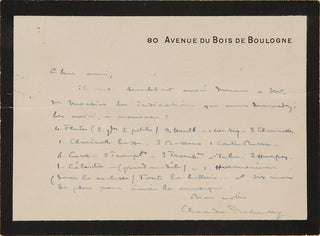 80 AVENUE DU BOIS DE BOULOGNE
Cher ami,
Il me semblait avoir donné à Mr.
les indications que vous demandez;
les voici, à nouveau :
4 Flûtes (2 gdes 2 petites) 2 Hautb. - 1 cor ang - 3 Clarinettes
1 Clarinette basse. 3 Bassons 1 Contre Basson.
6 Cors - 3 Tromp. - 3 Tromb. - Tuba. 3 Harpes.
1 Célesta - 1 Harmonium
(dans la coulisse) Toute la batterie... et
de plus pour
Bien vôtre
Claude Debussy